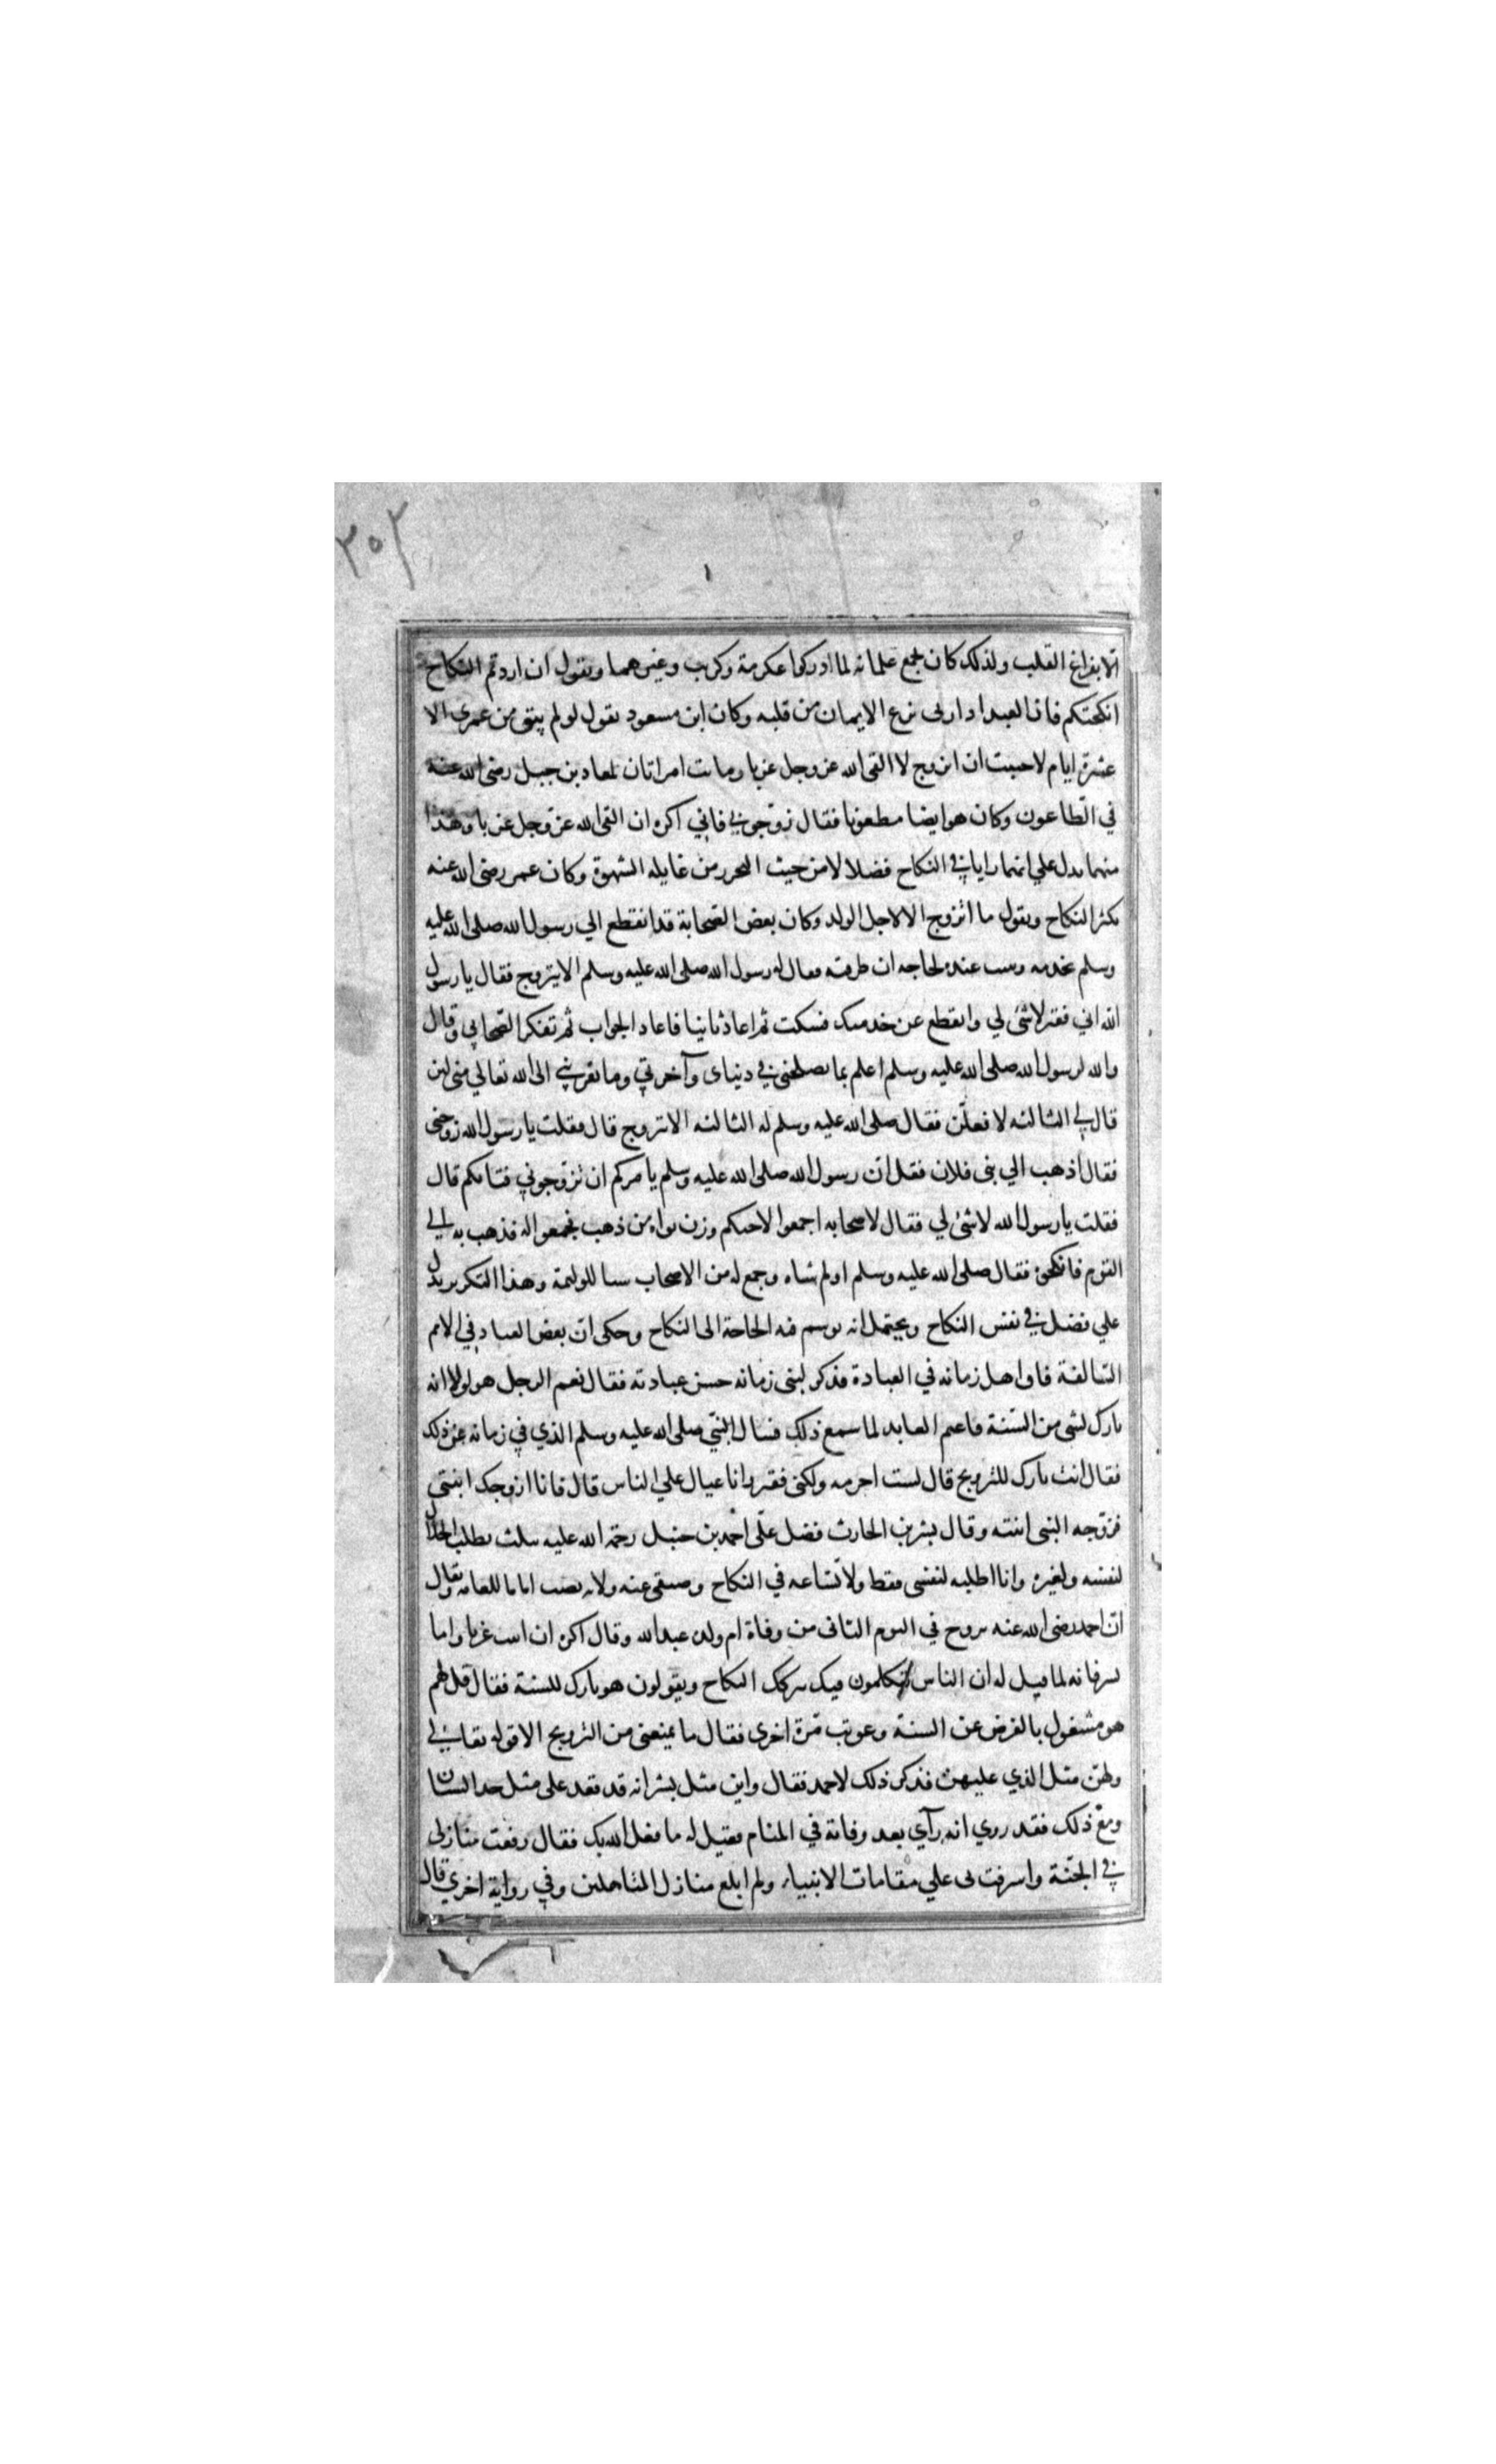 ٣٥٢
١
الا بفراغ القلب ولذلك كان يجمع غلمانه لما ادركوا عكرمة وكريب وغيرهما ويقول ان اردتم النكاح
انكحتكم فان العبد اذا زنى نزع الايمان من قلبه وكان ابن مسعود يقول لو لم يبق من عمري الا
عشرة ايام لاحببت ان اتزوج لا القى الله عز وجل عزبا ومات امراتان لمعاذ بن جبل رضى الله عنه
في الطاعون وكان هو ايضا مطعونا فقال زوجوني فاني اكره ان القى الله عز وجل عزبا وهذا
منهما يدل علي انهما رايا في النكاح فضلا لا من حيث التحرز من غايلة الشهوة وكان عمر رضى الله عنه
يكثر النكاح ويقول ما اتزوج الا لاجل الولد وكان بعض الصحابة قد انقطع الي رسول الله صلى الله عليه
وسلم يخدمه ويبيت عنده لحاجه ان طرقته فقال له رسول الله صلى الله عليه وسلم الا يتزوج فقال يا رسول
الله اني فقير لا شئ لي وانقطع عن خدمتك فسكت ثم اعاد ثانيا فاعاد الجواب ثم تفكر الصحابي وقال
والله لرسول الله صلى الله عليه وسلم اعلم بما يصلحني في دنياى وآخرتي وما يقربني الى الله تعالي مني لئن
قال لي الثالثه لافعلن فقال صلى الله عليه وسلم له الثالثه الا تتزوج قال فقلت يا رسول الله زوجنى
فقال اذهب الي بنى فلان فقل ان رسول الله صلى الله عليه وسلم يامركم ان تزوجوني فتاتكم قال
فقلت يا رسول الله لا شئ لي فقال لاصحابه اجمعوا لاخيكم وزن نواه من ذهب فجمعوا له فذهب به الي
القوم فانكحوه فقال صلى الله عليه وسلم اولم بشاه وجمع له من الاصحاب شيا للوليمة وهذا التكرير يدل
علي فضل في نفس النكاح ويحتمل انه توسم فيه الحاجة الى النكاح وحكى ان بعض العباد في الامم
السالفة فاق اهل زمانه في العبادة فذكر لنبى زمانه حسن عبادته فقال نعم الرجل هو لولا انه
تارك لشى من السنة فاغتم العابد لما سمع ذلك فسال النبي صلى الله عليه وسلم الذي في زمانه عن ذلك
فقال انت تارك للتزويج قال لست احرمه ولكنى فقير وانا عيال علي الناس قال فانا ازوجك ابنتى
فزوجه النبى ابنته وقال بشر بن الحارث فضل علي احمد بن حنبل رحمة الله عليه بثلث يطلب الحلال
لنفسه ولغيره وانا اطلبه لنفسى فقط ولاتساعه في النكاح وضيقى عنه ولانه نصب اماما للعامه ويقال
ان احمد رضى الله عنه تزوج في اليوم الثانى من وفاة ام ولده عبد الله وقال اكره ان ابيت عزبا واما
بشر فانه لما قيل له ان الناس يتكلمون فيك بتركك النكاح ويقولون هو تارك للسنة فقال قل لهم
هو مشغول بالفرض عن السنة وعوتب مرة اخرى فقال ما يمنعنى من التزويج الا قوله تعالي
ولهن مثل الذي عليهن فذكر ذلك لاحمد فقال واين مثل بشر انه قد قعد على مثل حد السنان
ومع ذلك فقد روي انه رآي بعد وفاته في المنام فقيل له ما فعل الله بك فقال رفعت منازلى
في الجنة واشرفت بى علي مقامات الانبياء ولم ابلغ منازل المتاهلين وفي رواية اخري قال